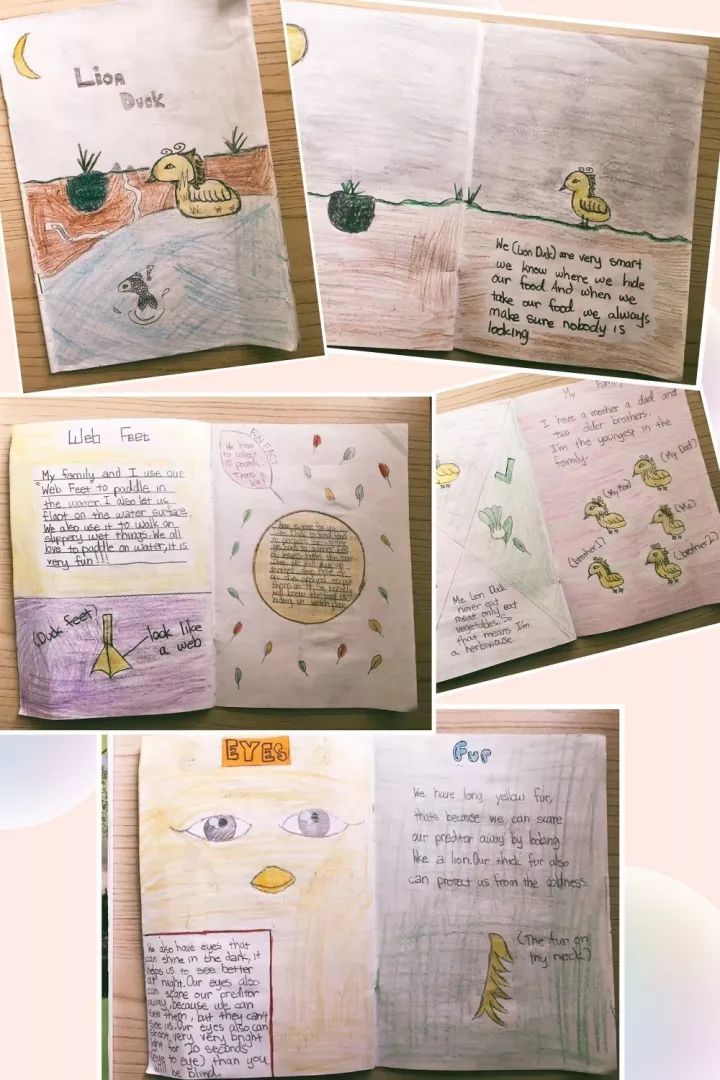 Lion
Duck
We (Lion Duck) are very smart
we know where we hide
our food. And when we
take our food we always
make sure nobody is
looking
Web Feet
My family and I use our
Web Feet to paddle in
the water. I also let us
float on the water surface.
We also use it to walk on
slippery wet things. We all
love to paddle on water, it is
very fun!!!
(Duck feet)
look like
a web
FUN FACT
We have
to collect
10 pounds,
Thats a
lot!
My Family
I have a mother a dad and
two older brothers.
I'm the youngest in the
family.
(My Dad)
(My Mom)
(Me)
(brother1)
(brother2)
Me Lion Duck
never eat
meat only eat
vegetables. So
that means I'm
a herbiviouse.
EYES
We also have eyes that
can shine in the dark, it
helps us to see better
at night. Our eyes also
can scare our preditor
away, because we can
see them, but they can't
see us. Our eyes also can
shoot very very bright
light for 20 seconds
(eye to eye) than you
will be blind.
Fur
We have long yellow fur,
thats because we can scare
our preditor away by looking
like a lion. Our thick fur also
can protect us from the coldness.
(The fun on
my neck)